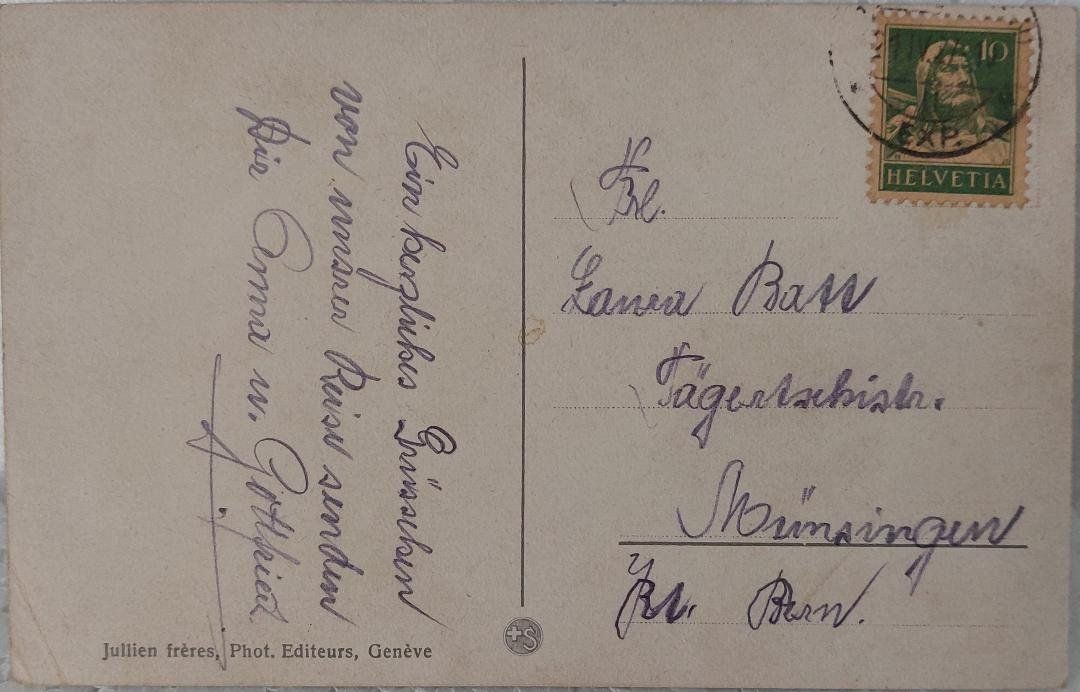 Ein herzliches Grüsschen
von unsrer Reise senden
Dir Anna u. Gottfried
10
EXP.
HELVETIA
Frl.
Laura Batt
Tägertschistr.
Münsingen
Kt. Bern.
Jullien frères, Phot. Editeurs, Genève
+S